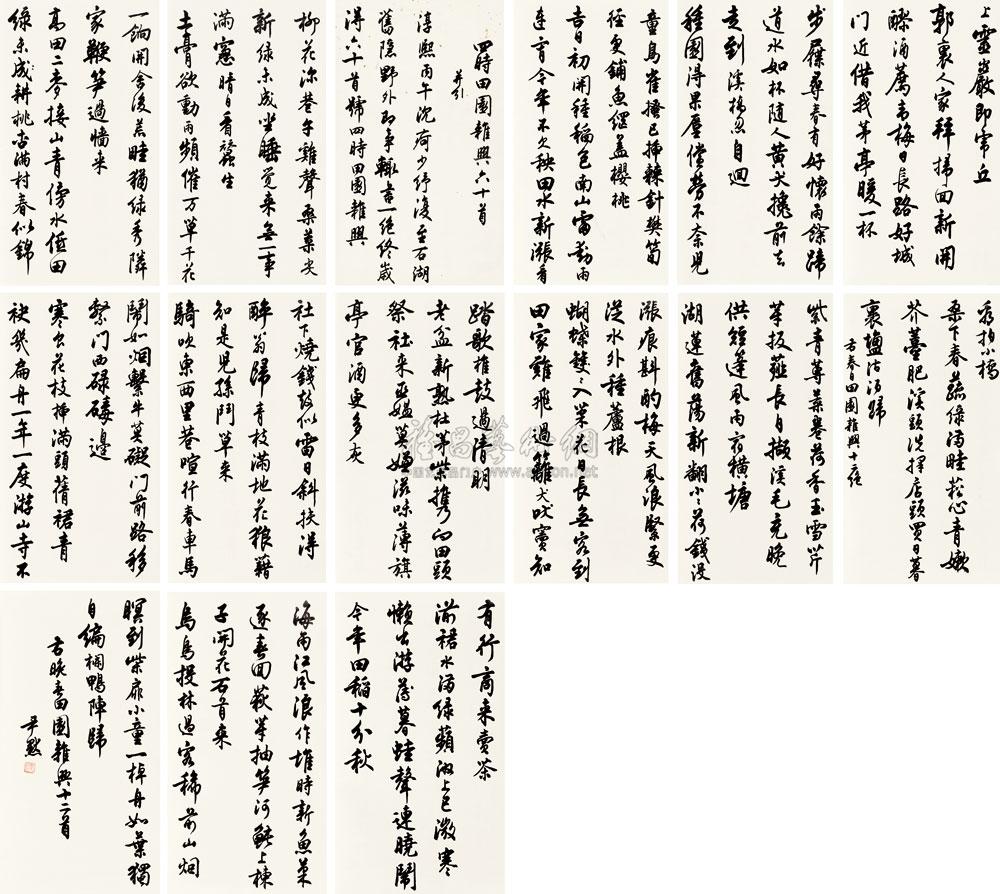 四時田園雜興六十首
并引
淳熙丙午沈疴少紓復至石湖
舊隱野外即事輒書一絕終歲
得六十首號四時田園雜興
柳花深巷午雞聲桑葉尖
新綠未成坐睡覺來無一事
滿窓晴日看蠶生
土膏欲動雨頻催万草千花
一餉開舍後荒畦猶綠秀隣
家鞭筍過墻來
高田二麥接山青傍水低田
綠未成耕桃杏滿村春似錦
踏歌椎鼓過清明
老盆新熟杜茅柴攜向田頭
祭社來巫媼莫嫌滋味薄旗
亭官酒更多灰
社下燒錢鼓似雷日斜扶得
醉翁歸青枝滿地花狼藉
知是兒孫鬥草來
騎吹東西里巷喧行春車馬
鬧如烟繫牛莫礙門前路移
繫門西碌碡邊
寒食花枝插滿頭蒨裙青
袂幾扁舟一年一度游山寺不
上靈巖即虎丘
郭裏人家拜掃回新開
醪酒薦青梅日長路好城
門近借我茅亭暖一杯
步屧尋春有好懷雨餘蹄
道水如杯隨人黃犬攙前去
走到溪橋忽自迴
種園得果廑償勞不奈兒
童鳥雀搔已插棘針樊筍
徑更鋪魚網蓋櫻桃
吉日初開種稻包南山雷動雨
連宵今年不欠秧田水新漲看
看拍小橋
桑下春蔬綠滿畦菘心青嫩
芥薹肥溪頭洗擇店頭買日暮
裹鹽沽酒歸
右春日田園雜興十二絕
紫青蓴菜卷荷香玉雪芹
芽拔薤長自擷溪毛充晚
供短篷風雨宿橫塘
湖蓮舊蕩新翻小荷錢沒
漲痕斟酌梅天風浪緊更
從水外種蘆根
蝴蝶雙々入菜花日長無客到
田家雞飛過籬犬吠竇知
有行商來賣茶
湔裙水滿綠蘋洲上巳微寒
懶出游薄暮蛙聲連曉鬧
今年田稻十分秋
海角江風浪作堆時新魚菜
逐春回荻芽抽筍河魨上楝
子開花石首來
烏鳥投林過客稀前山烟
暝到柴扉小童一棹舟如葉獨
自編欄鴨陣歸
右晚春田園雜興十二首
尹默